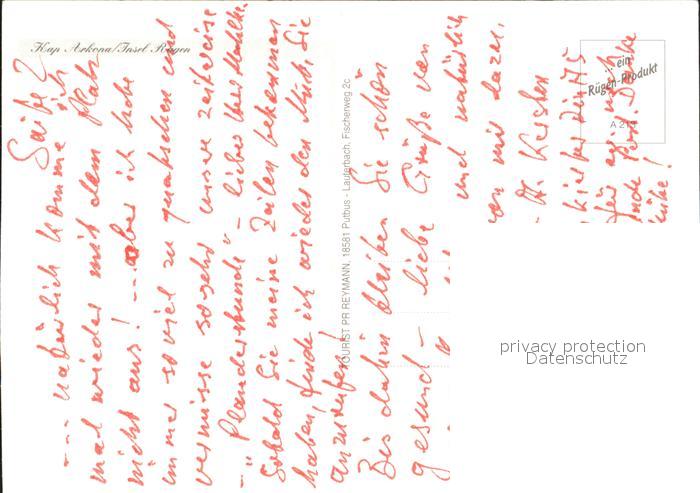 Kap Arkona/Insel Rügen
Seite 2
--- natürlich komme ich
mal wieder mit dem Platz
nicht aus! -- aber ich habe
immer soviel zu quatschen und
vermisse so sehr unsere zeitweise
-" Plauderstunde" - lieber Herr
Sobald Sie meine Zeilen bekommen
haben, finde ich wieder den Mut, Sie
anzurufen!
Bis dahin bleiben Sie schön
gesund - liebe Grüße von
und natürlich
von mir dazu.
für
Post. Danke
TOURIST PR REYMANN, 18581 Putbus - Lauterbach, Fischerweg 2c
...ein
Rügen-Produkt
A 219
privacy protection
Datenschutz